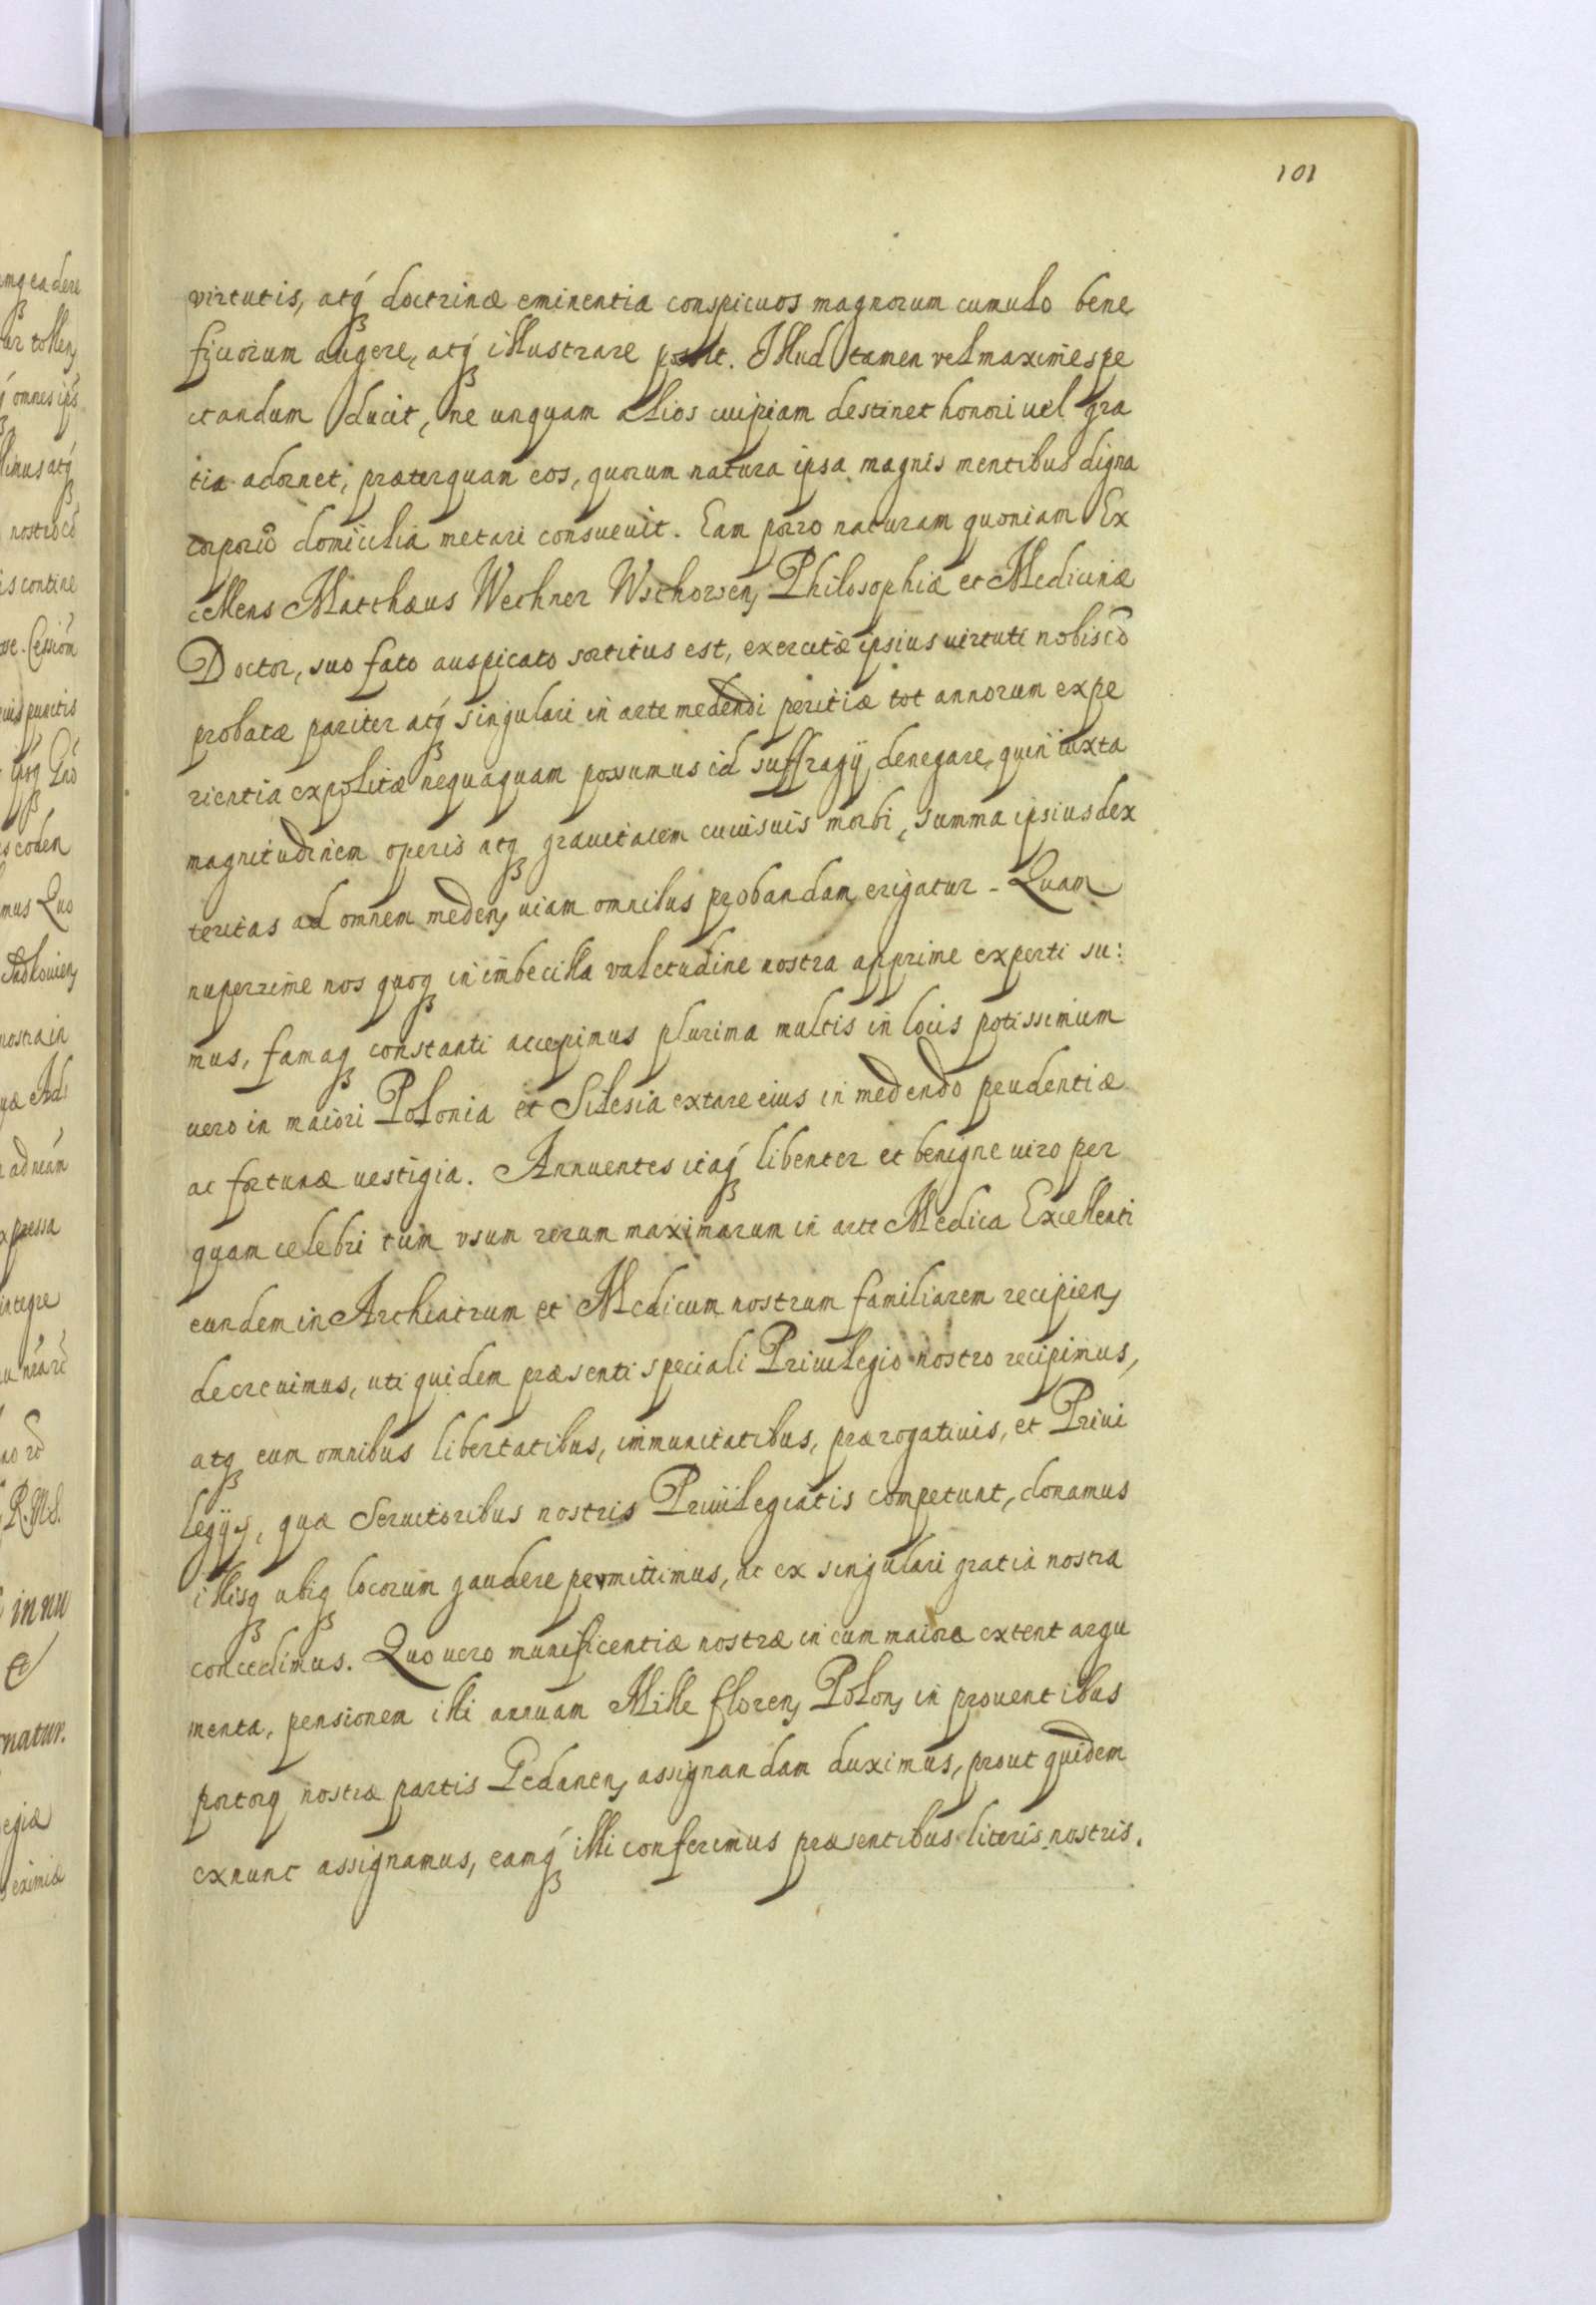 101
virtutis, atq́ꝫ doctrinæ eminentia conspicuos magnorum cumulo bene
ficiorum augere, atq́ꝫ illustrare possit. Illud tamen vel maxime spe
ctandum ducit, ne unquam alios cuipiam destinet honori uel gra
tia adornet, præterquam eos, quorum natura ipsa magnis mentibus digna
corporũ domicilia metari consuevit. Eam porro naturam quoniam Ex
cellens Matthæus Wechner Wschowen, Philosophiæ et Medicinæ
Doctor, suo fato auspicato sortitus est, exercitæ ipsius virtuti nobiscũ
probatæ pariter atq́ꝫ singulari in arte medendi peritiæ tot annorum expe
rientia expolitæ nequaquam possumus id suffragÿ denegare, quin iuxta
magnitudinem operis atqꝫ grauitatem cuiusuis morbi, summa ipsius dex
teritas ad omnem meden, uiam omnibus probandam erigatur. Quam
nuperrime nos quoqꝫ in imbecilla valetudine nostra apprime experti su:
mus, famaqꝫ constanti accepimus plurima multis in locis potissimum
uero in maiori Polonia et Silesia extare eius in medendo prudentiæ
ac fortunæ uestigia. Annuentes itaq́ꝫ libenter et benigne uiro per
quam celebri tum vsum rerum maximarum in arte Medica Excellenti
eundem in Archiatrum et Medicum nostrum familiarem recipien,
decreuimus, uti quidem præsenti speciali Priuilegio nostro recipimus,
atqꝫ eum omnibus libertatibus, immunitatibus, prærogatiuis, et Priui
legÿs, quæ Seruitoribus nostris Priuilegiatis competunt, donamus
illisqꝫ ubiqꝫ locorum gaudere permittimus, ac ex singulari gratia nostra
concedimus. Quo uero munificentiæ nostræ in eum maiora extent argu
menta, pensionem illi annuam Mille floren, Polon, in prouentibus
portorq nostræ partis Gedanen, assignandam duximus, prout quidem
exnunc assignamus, eamq́ꝫ illi conferimus præsentibus literis nostris.